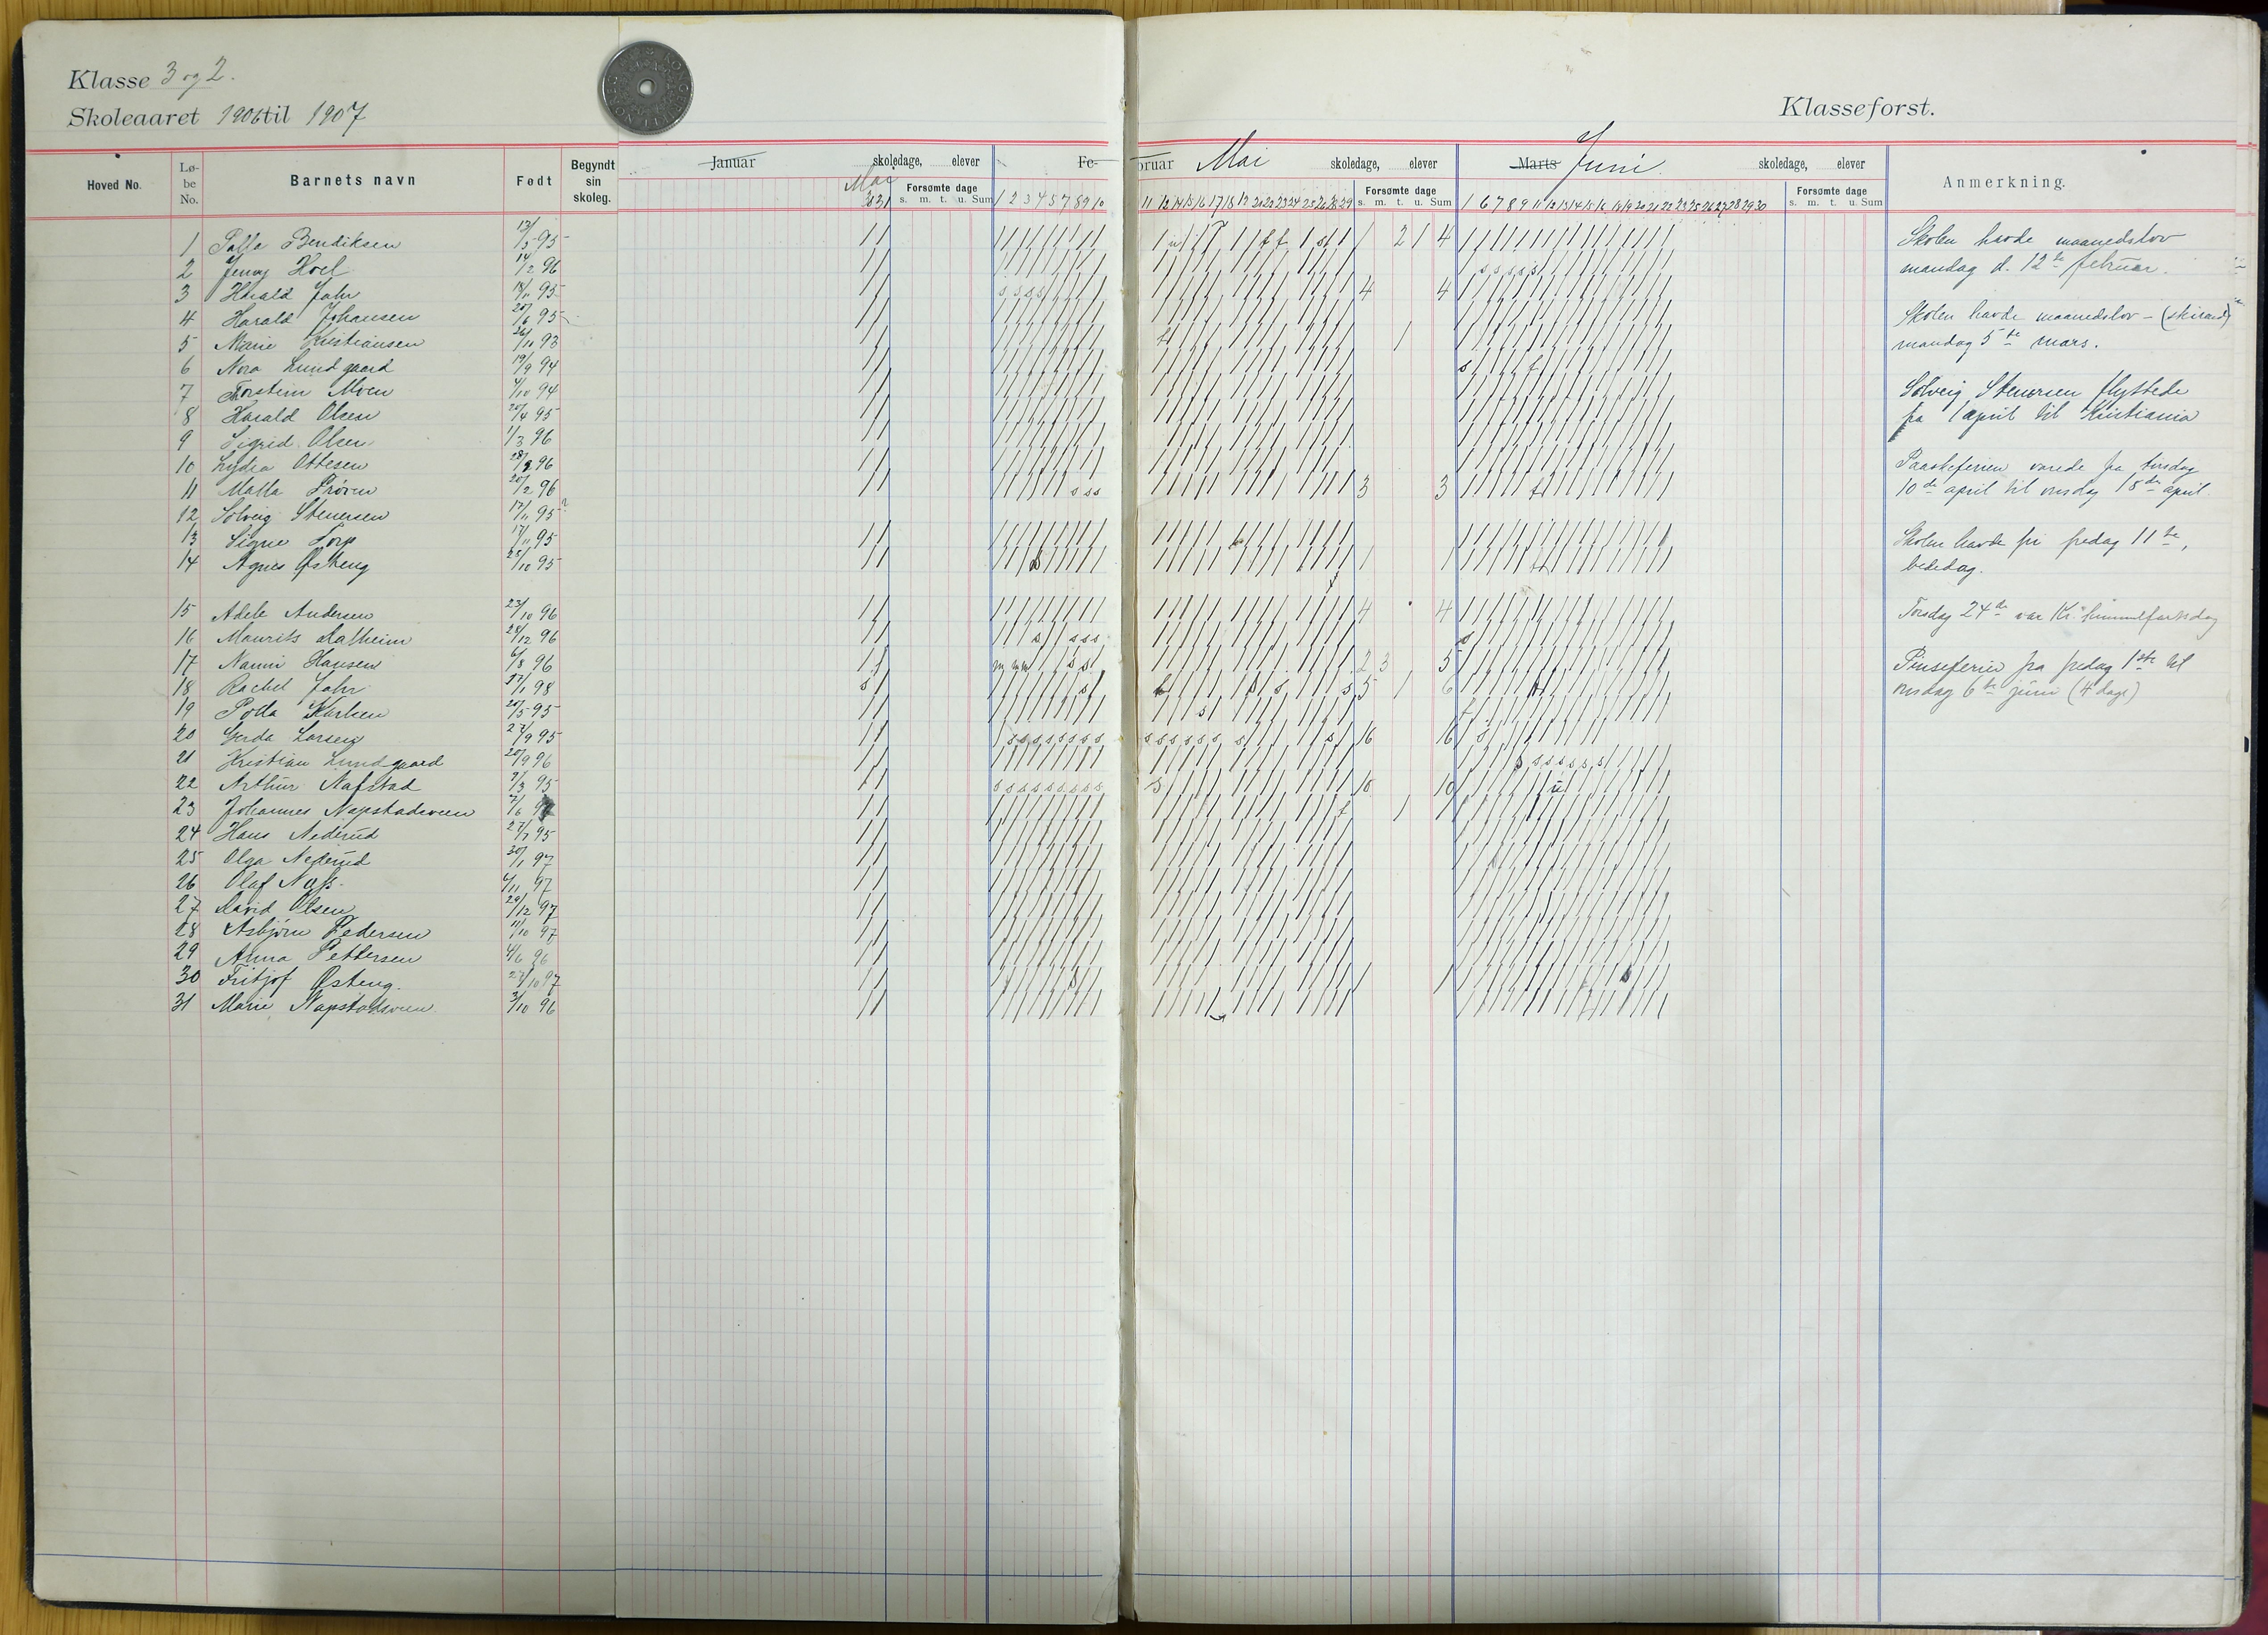 Klasse 3 og 2.
Skoleaaret 1906 til 1907
Klasseforst.
Hoved No.
Lø-
be
No.
Barnets navn
Født
Begyndt
sin
skoleg.
Januar
Mai
skoledage, elever
Forsømte dage
s. m. t. u. Sum
Fe-
bruar Mai
skoledage, elever
Forsømte dage
s. m. t. u. Sum
Marts Juni
skoledage, elever
Forsømte dage
s. m. t. u. Sum
Anmerkning.
30 31
1 2 3 4 5 7 8 9 10
11 12 14 15 16 17 18 19 21 22 23 24 25 26 28 29
1 6 7 8 9 11 12 13 14 15 16 18 19 20 21 22 23 25 26 27 28 29 30
1 Bendiksen 13/5 95 1 2 1 4
2 Jenny Hoel 14/2 96
3 Harald Jahr 95 4 4
4 Harald Johansen 20/6 95
5 Marie Kristiansen 26/11 93 1
6 Nora Lundgaard 19/9 94
7 Torstein Moen 4/10 94
8 Harald Olsen 20/4 95
9 Sigrid Olsen 1/3 96
10 Lydia Ottesen 96
11 Prøven 20/2 96 3 3
12 Solveig Stenersen 17/11 95
13 Signe Torp 17/11 95
14 Agnes Østeng 25/10 95 1 1
15 Adele Andersen 23/10 96 4 4
16 Maurits Dalheim 28/12 96
17 Nanni Hansen 6/8 96 2 3 5
18 Rachel Jahr 27/1 98 5 1 6
19 Karlsen 20/5 95
20 Gerda Larsen 27/9 95 16 16
21 Kristian Lundgaard 20/9 96
22 Arthur Nafstad 7/3 95 10 10
23 Johannes Napstadsveen 7/6 1 1
24 Hans Nederud 27/7 95
25 Olga Nederud 30/1 97
26 Olaf 4/11 97
27 David Olsen 29/12 97
28 Asbjørn Pedersen 11/10 97
29 Anna Pettersen 4/6 96
30 Fritjof Østeng. 27/10 97 1 1
31 Marie Napstadsveen 3/10 96
Skolen havde maanedslov
mandag d. 12te februar.
Skolen havde maanedslov -
mandag 5te mars.
Solveig Stenersen flyttede
fra 1 april til Kristiania
Paaskeferien varede fra tirsdag
10de april til onsdag 18de april.
Skolen havde fri fredag 11te,
bededag.
Torsdag 24de var Kr. himmelfartsdag
Pinseferien fra fredag 1ste til
onsdag 6te juni (4 dage)